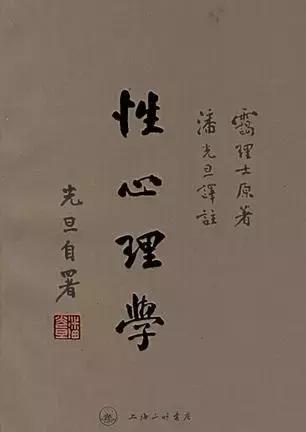 靄理士原著
潘光旦譯註
性心理學
光旦自署
上海三聯書店